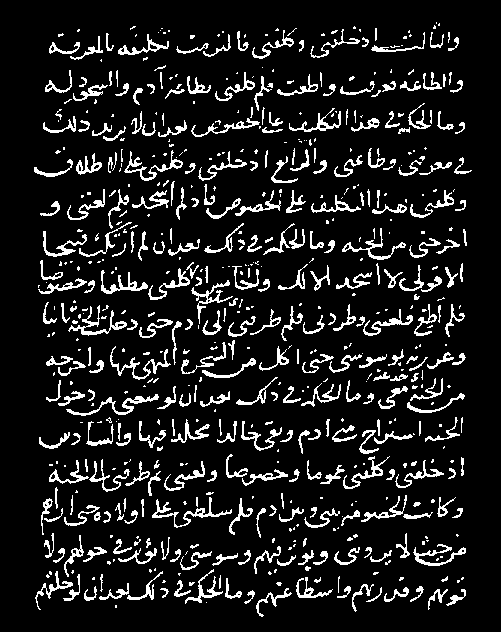 والثالث اذ خلقتنى وكلفنى فالتزمت تكليفه بالمعرفة
والطاعة فعرفت واطعت فلم كلفنى بطاعة آدم والسجود له
وما الحكمة فى هذا التكليف على الخصوص بعد ان لا يزيد ذلك
فى معرفتى وطاعتى والرابع اذ خلقنى وكلفنى على الاطلاق
وكلفنى بهذا التكليف على الخصوص فاذ لم اسجد فلم لعننى و
اخرجنى من الجنة وما الحكمة فى ذلك بعد ان لم ارتكب قبيحا
الا قولى لا اسجد الا لك والخامس اذ كلفنى مطلقا وخصوصا
فلم اطع فلعننى وطردنى فلم طرقنى الى آدم حتى دخلت الجنة ثانيا
وغررته بوسوستى حتى اكل من الشجرة المنهى عنها واخرجه
من الجنة معى وما الحكمة فى ذلك بعد ان لو منعنى من دخول
الجنة استراح منى ادم وبقى خالدا مخلدا فيها والسادس
اذ خلقنى وكلفنى عموما وخصوصا ولعننى ثم طرقنى الى الجنة
وكانت الخصومة بينى وبين ادم فلم سلطنى على اولاده حتى اراهم
من حيث لا يروننى ويؤثر فيهم وسوستى ولا يؤثر فى حولهم ولا
قوتهم وقدرتهم واستطاعتهم وما الحكمة فى ذلك بعد ان لو خلقهم